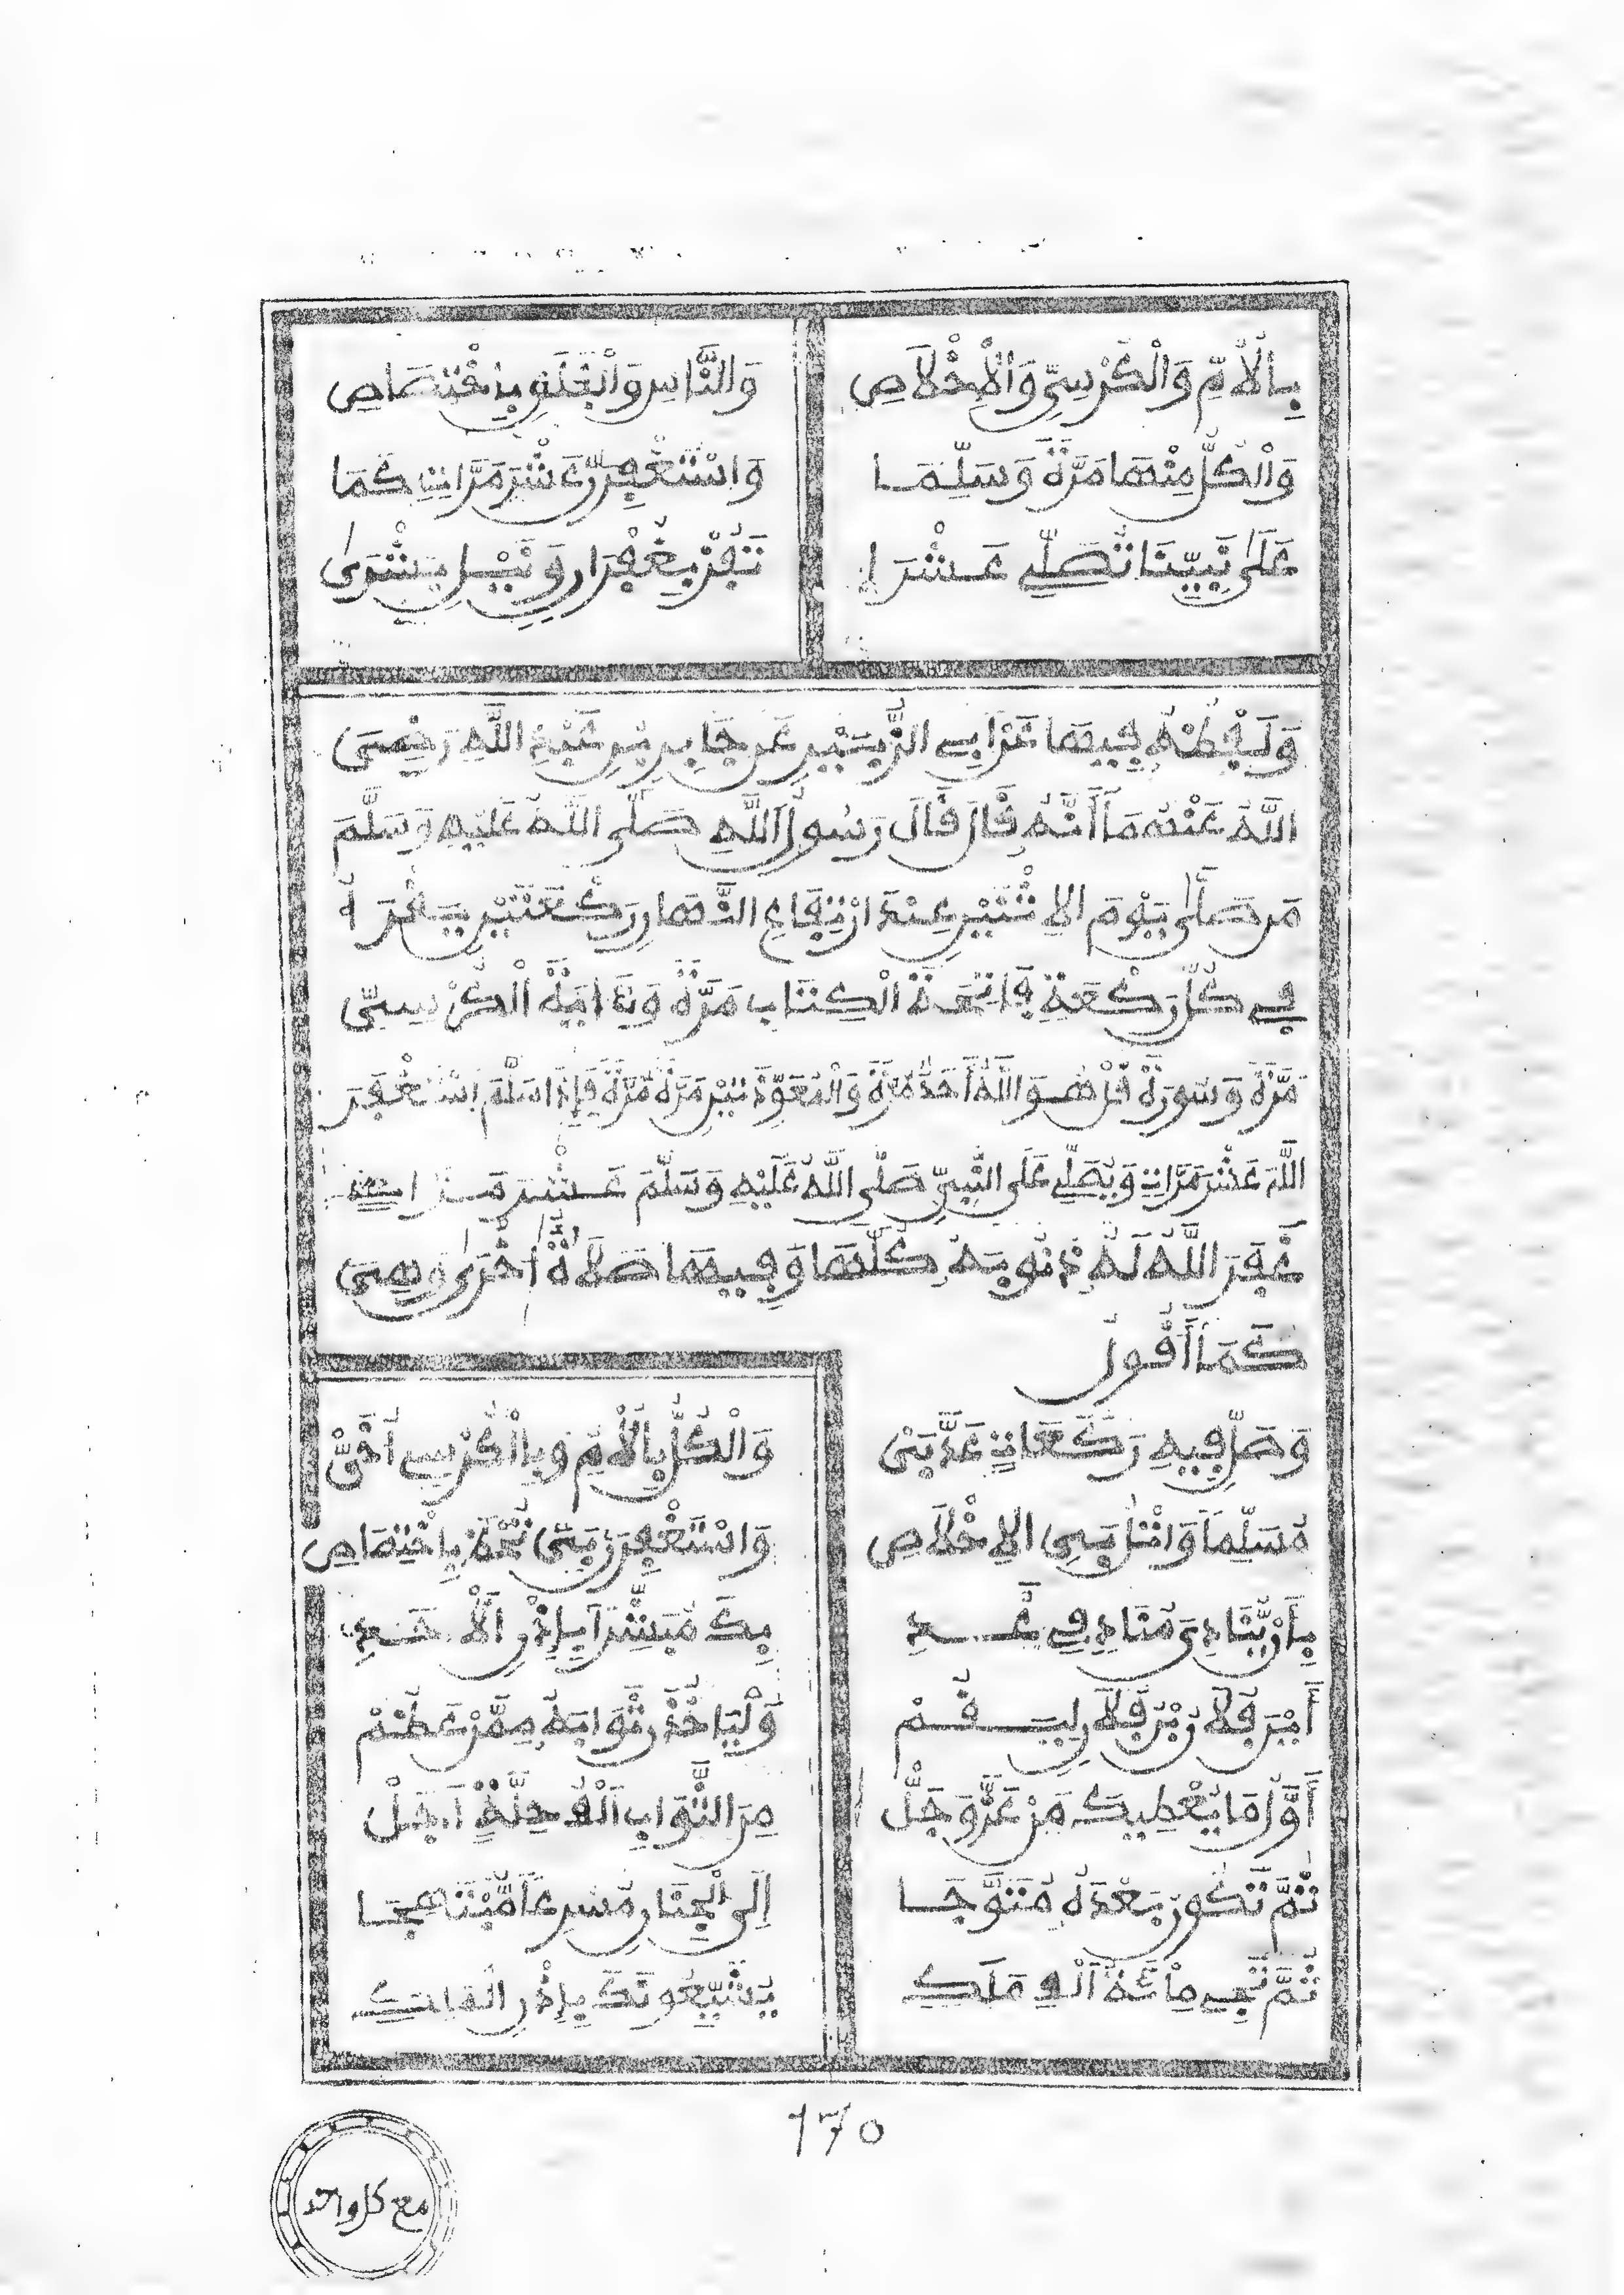 بِالْأُمِّ وَالْكُرْسِيِّ وَالْإِخْلَاصِ وَالنَّاسِ وَالْفَلَقِ بِاخْتِصَاصِ
وَالْكُلُّ مِنْهَا مَرَّةً وَسَلِّمَا وَاسْتَغْفِرَنَّ عَشْرَ مَرَّاتٍ كَمَا
عَلَى نَبِيِّنَا تُصَلِّي عَشْرَا تَفُزْ بِغُفْرَانٍ وَنَيْلِ بُشْرَى
وَلَفْظُهُ فِيهَا عَنْ أَبِي الزُّبَيْرِ عَنْ جَابِرِ بْنِ عَبْدِ اللَّهِ رَضِيَ
اللَّهُ عَنْهُمَا أَنَّهُ قَالَ قَالَ رَسُولُ اللَّهِ صَلَّى اللَّهُ عَلَيْهِ وَسَلَّمَ
مَنْ صَلَّى يَوْمَ الِاثْنَيْنِ عِنْدَ ارْتِفَاعِ النَّهَارِ رَكْعَتَيْنِ يَقْرَأُ
فِي كُلِّ رَكْعَةٍ فَاتِحَةَ الْكِتَابِ مَرَّةً وَءَايَةَ الْكُرْسِيِّ
مَرَّةً وَسُورَةَ قُلْ هُوَ اللَّهُ أَحَدٌ مَرَّةً وَالْمُعَوِّذَتَيْنِ مَرَّةً مَرَّةً فَإِذَا سَلَّمَ اسْتَغْفَرَ
اللَّهَ عَشْرَ مَرَّاتٍ وَيُصَلِّي عَلَى النَّبِيِّ صَلَّى اللَّهُ عَلَيْهِ وَسَلَّمَ عَشْرَ مَرَّاتٍ
غَفَرَ اللَّهُ لَهُ ذُنُوبَهُ كُلَّهَا وَفِيهَا صَلَاةٌ أُخْرَى وَهِيَ
كَمَا أَقُولُ
وَصَلِّ فِيهِ رَكَعَاتٍ عَدَّ يَبْ وَالْكُلُّ بِالْأُمِّ وَبِالْكُرْسِي أَحَقّْ
مُسَلِّمًا وَاتْلُ يَبِي الِاخْلَاصِ وَاسْتَغْفِرَنْ يَبَّى بِاخْتِصَاصِ
يَا أَرْيُنَادَى مُنَادٍ فِي غَدِ بِكَ مُبَشِّرًا بِإِذْنِ الْأَحَدِ
أَيْنَ فُلَانُ بْنُ فُلَانٍ لِيَقُمْ وَلْيَأْخُذَنْ ثَوَابَهُ مِمَّنْ عَظُمْ
أَوَّلُ مَا يُعْطِيكَ مَنْ عَزَّ وَجَلّْ مِنَ الثَّوَابِ أَلْفُ حِلَّةٍ أَجَلْ
ثُمَّ تَكُونُ بَعْدَهُ مُتَوَّجَا إِلَى الْجِنَانِ
ثُمَّ تَجِي مِائَةُ أَلْفِ مَلَكِ يُشَيِّعُونَكَ بِإِذْنِ الْمَلِكِ
170
مع كل واحد